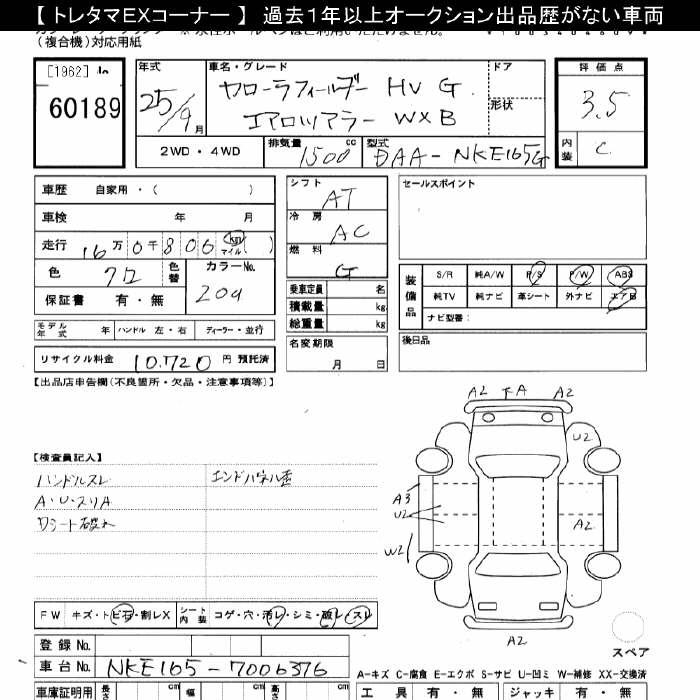 【 トレタマEXコーナー 】 過去1年以上オークション出品歴がない車両
（複合機）対応用紙
[1962]
60189
年式
25/9月
車名・グレード
カローラフィールダー HV G
エアロツアラー W×B
ドア
形状
評価点
3.5
内装
C
2WD・4WD
排気量
1500 cc
型式
DAA-NKE165G
車歴 自家用・（ ）
車検 年 月
走行 16万0千806 km マイル
色 クロ 色替
カラーNo.
209
保証書 有・無
シフト
AT
冷房
AC
燃料
G
乗車定員 名
積載量 kg
総重量 kg
名変期限
月 日
セールスポイント
装備品
S/R 純A/W P/S P/W ABS
純TV 純ナビ 革シート 外ナビ エアB
ナビ型番：
後日品
モデル年式 年 ハンドル 左・右 ディーラー・並行
リサイクル料金 10.720 円 預託済
【出品店申告欄(不良箇所・欠品・注意事項等)】
【検査員記入】
ハンドルスレ
エンドパネル歪
A・U・スリA
シート破れ
A2 A A2
U2
A3
U2
A2
W2
A2
スペア
FW キズ・トビ石・割レX シート内装 コゲ・穴・汚レ・シミ・破レ・スレ
登録No.
車台No. NKE165-7006376
A-キズ C-腐食 E-エクボ S-サビ U-凹ミ W-補修 XX-交換済
車庫証明用 長さ cm 幅 cm 高さ cm
工具 有・無 ジャッキ 有・無